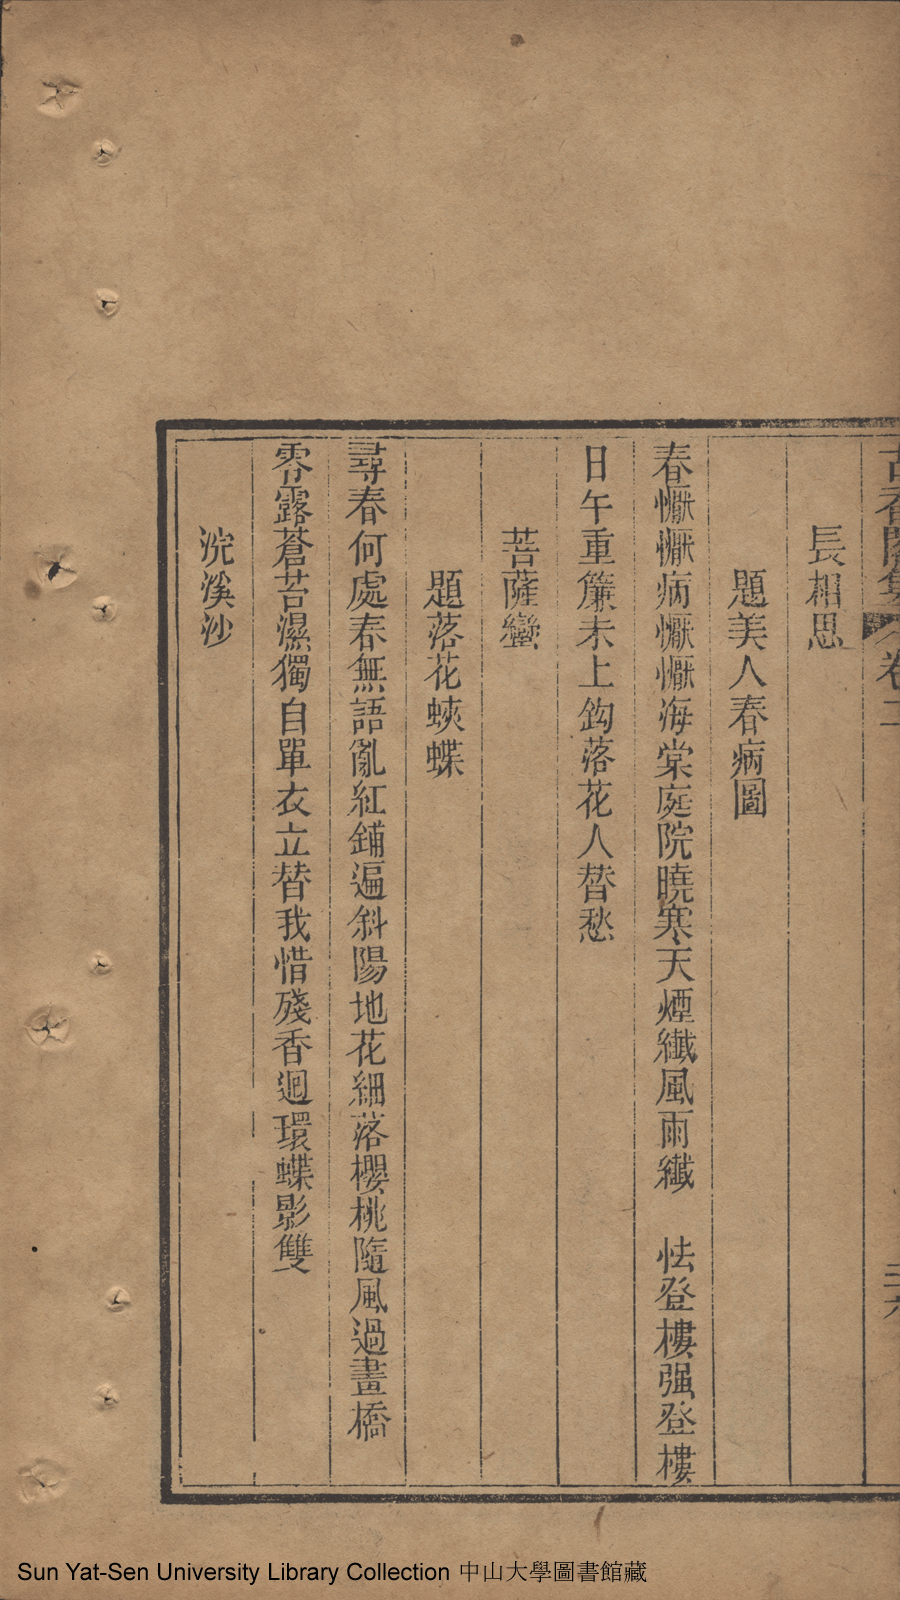 古香閣集 卷二
長相思
題美人春病圖
春懨懨病懨懨海棠庭院曉寒天煙纎風雨纎 怯登樓强登樓
日午重簾未上鈎落花人替愁
菩薩蠻
題落花蛺蝶
尋春何處春無語亂紅鋪遍斜陽地花細落櫻桃隨風過畫橋
零露蒼苔濕獨自單衣立替我惜殘香迴環蝶影雙
浣溪沙
Sun Yat-Sen University Library Collection 中山大學圖書館藏